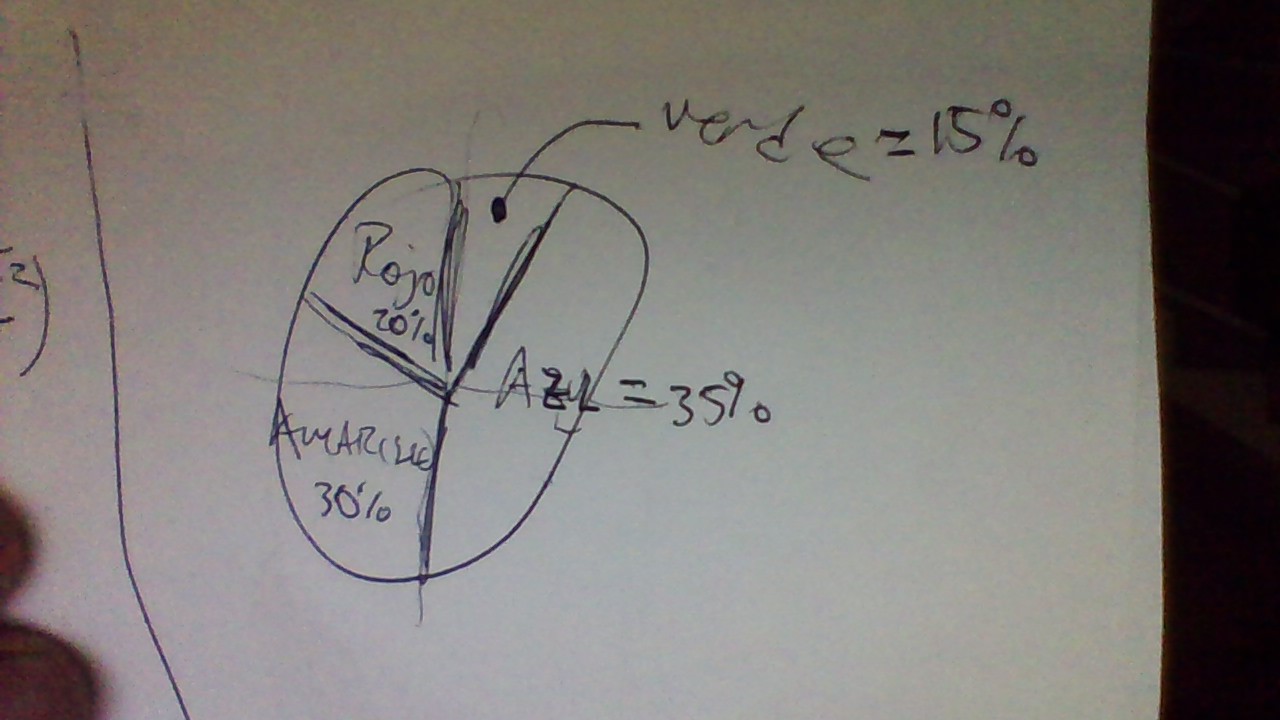 verde = 15%
Rojo
20%
Azul = 35%
Amarillo
30%
2)